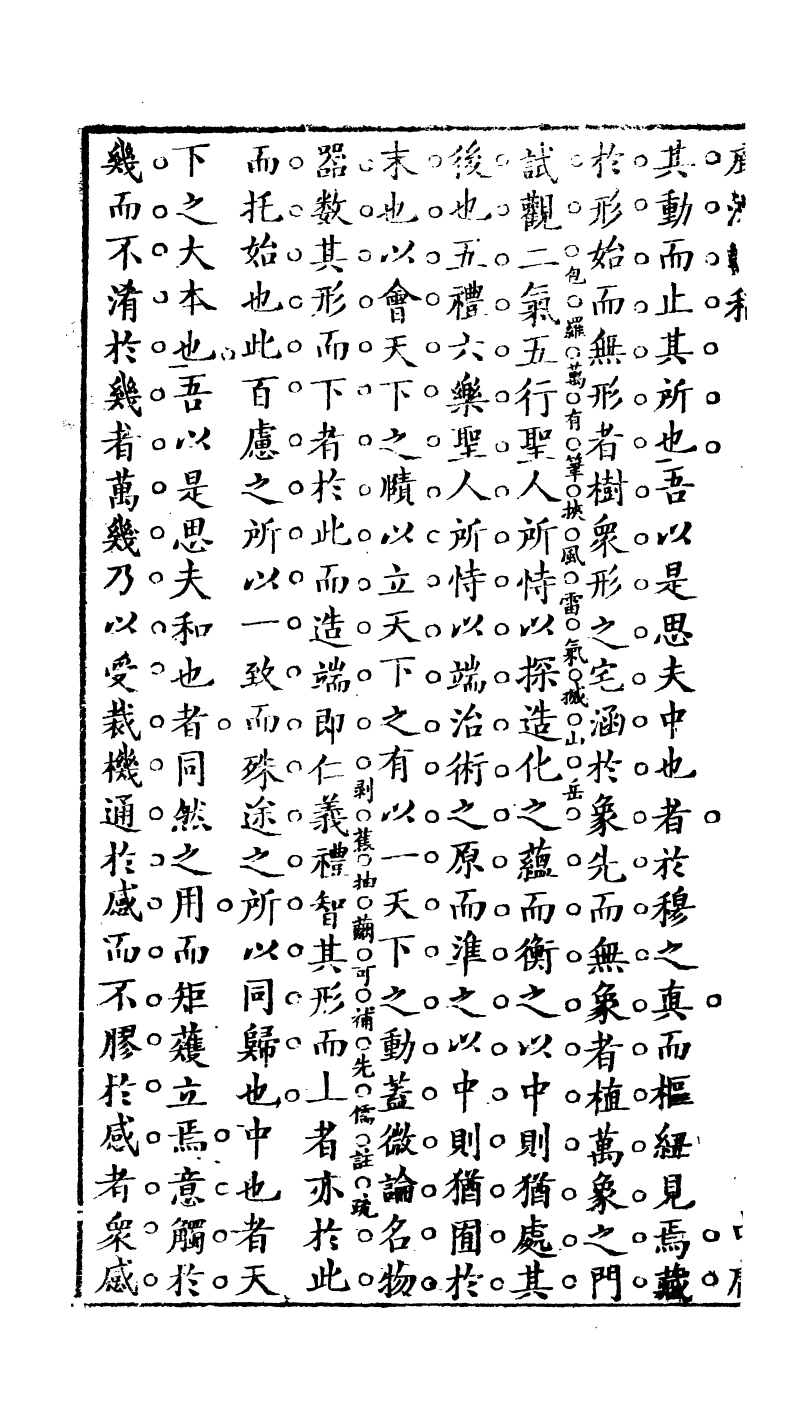 其動而止其所也吾以是思夫中也者於穆之真而樞紐見焉藏
於形始而無形者樹衆形之宅涵於象先而無象者植萬象之門
包羅萬有筆挾風雷氣撼山岳
試觀二氣五行聖人所恃以探造化之蘊而衡之以中則猶處其
後也五禮六樂聖人所恃以端治術之原而準之以中則猶囿於
末也以會天下之賾以立天下之有以一天下之動蓋微論名物
剥蕉抽繭可補先儒註疏
器数其形而下者於此而造端即仁義禮智其形而上者亦於此
而托始也此百慮之所以一致而殊途之所以同歸也中也者天
下之大本也吾以是思夫和也者同然之用而矩蒦立焉意觸於
幾而不淆於幾者萬幾乃以受裁機通於感而不膠於感者衆感